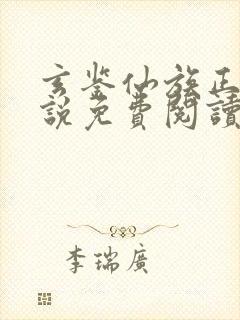 玄鉴仙族正
説免費閱讀
李瑞廣